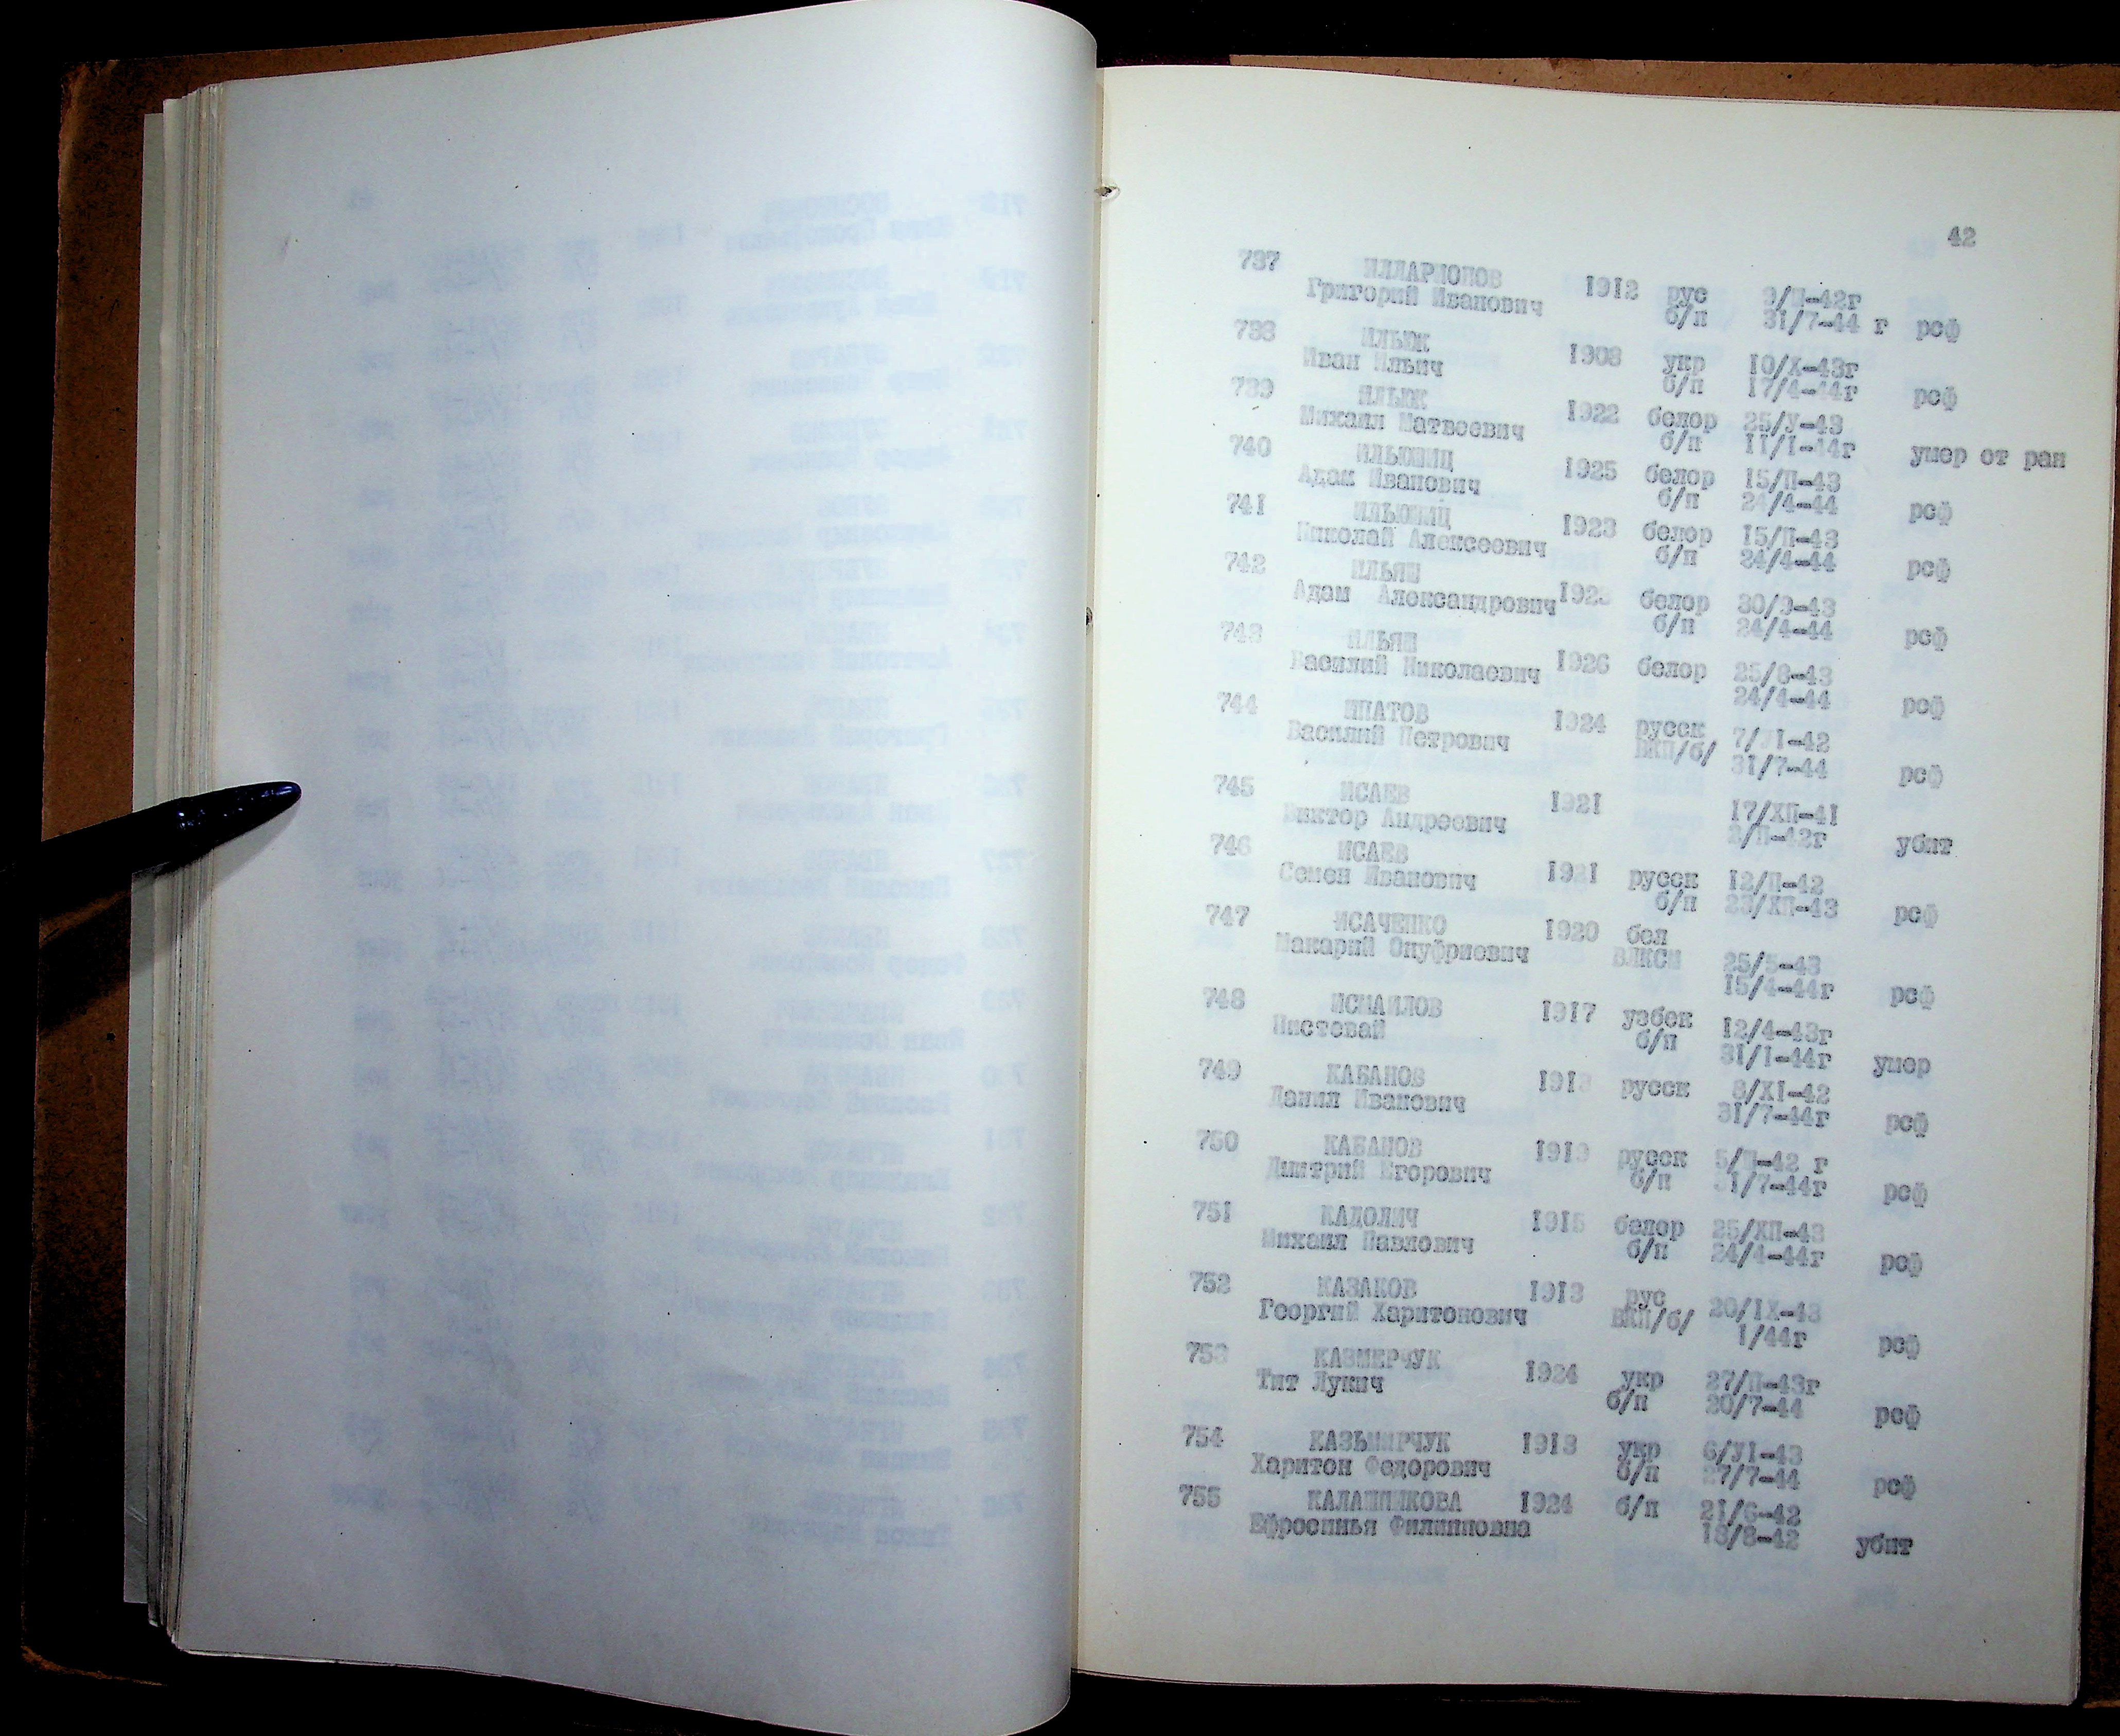 42
737 ИЛЛАРИОНОВ 1912 рус 9/П-42г
Григорий Иванович б/п 31/7-44 г рсф
738 ИЛЬЮК 1908 укр 10/Х-43г
Иван Ильич б/п 17/4-44г рсф
739 ИЛЬЮК 1922 белор 25/У-43
Михаил Матвеевич б/п 11/1-44г умер от ран
740 ИЛЬЮШИЦ 1925 белор 15/П-43
Адам Иванович б/п 24/4-44 рсф
741 ИЛЬЮШИЦ 1923 белор 15/П-43
Николай Алексеевич б/п 24/4-44 рсф
742 ИЛЬЯШ белор 30/9-43
Адам Александрович б/п 24/4-44 рсф
743 ИЛЬЯШ 1926 белор 25/8-43
Василий Николаевич 24/4-44 рсф
744 ИПАТОВ 1924 русск
Василий Петрович ВКП/б/ 31/7-44 рсф
745 ИСАЕВ 1921 17/ХП-41
Виктор Андреевич 2/П-42г убит
746 ИСАЕВ русск 12/П-42
Семен Иванович б/п 23/ХП-43 рсф
747 ИСАЧЕНКО 1920 бел
Макарий Онуфриевич ВЛКСМ 25/5-43
15/4-44г рсф
748 ИСМАИЛОВ 1917 узбек 12/4-43г
Пистевай б/п 31/1-44г умер
749 КАБАНОВ русск 8/Х1-42
Данил Иванович 31/7-44г рсф
750 КАБАНОВ 1919 русск 5/П-42 г
Дмитрий Егорович б/п 31/7-44г рсф
751 КАДОЛИЧ 1915 белор 25/ХП-43
Михаил Павлович б/п 24/4-44г рсф
752 КАЗАКОВ 1913 рус 20/1Х-43
Георгий Харитонович ВКП/б/ 1/44г рсф
753 КАЗМЕРЧУК 1924 укр 27/П-43г
Тит Лукич б/п 20/7-44 рсф
754 КАЗЬМИРЧУК 1913 укр 6/У1-43
Харитон Федорович б/п 27/7-44 рсф
755 КАЛАШНИКОВА 1924 б/п 21/6-42
Ефросинья Филипповна 18/8-42 убит